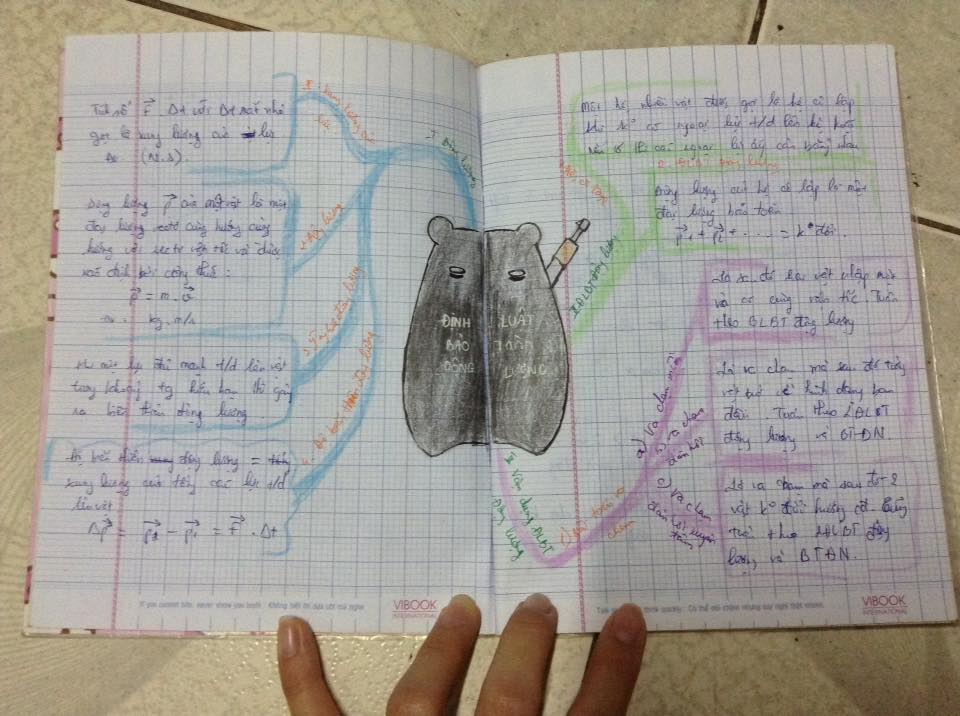 Tích số F⃗. Δt với Δt rất nhỏ
gọi là xung lượng của lực
(N.s).
Động lượng p⃗ của một vật là một
đại lượng vectơ cùng hướng
với vectơ vận tốc và được
xác định bởi công thức:
p⃗ = m.v⃗
kg.m/s
Khi một lực đủ mạnh t/d lên vật
trong khoảng tg hữu hạn thì gây
ra biến thiên động lượng.
Độ biến thiên động lượng =
xung lượng của tổng các lực t/d
lên vật
Δp⃗ = p⃗2 - p⃗1 = F⃗ . Δt
lực
động lượng
I Động lượng
ĐỊNH LUẬT
BẢO TOÀN
ĐỘNG LƯỢNG
Một hệ nhiều vật được gọi là hệ cô lập
khi k° có ngoại lực t/d lên hệ hoặc
nếu có thì các ngoại lực ấy cân bằng nhau
2. ĐLBT động lượng
Động lượng của hệ cô lập là một
đại lượng bảo toàn
p⃗1 + p⃗2 + ..... = k° đổi.
II ĐLBT động lượng
Là va
vật nhập một
và có cùng vận tốc. Tuân
theo ĐLBT động lượng
a) Va chạm mềm
Là va chạm mà sau đó từng
vật trở về hình dạng ban
đầu. Tuân theo ĐLBT
động lượng và BTĐN.
b) va chạm
đàn hồi
Là va chạm mà sau đó 2
vật k° đổi hướng cđ. Cũng
tuân theo ĐLBT động
lượng và BTĐN.
c) Va chạm
đàn hồi xuyên
tâm
III Vận dụng ĐLBT
động lượng
Bài toán va
chạm
If you cannot bite, never show you teeth. Không biết thì dựa cột mà nghe
VIBOOK
INTERNATIONAL
think quickly: Có thể nói chậm nhưng suy nghĩ thật nhanh.
VIBOOK
INTERNATIONAL